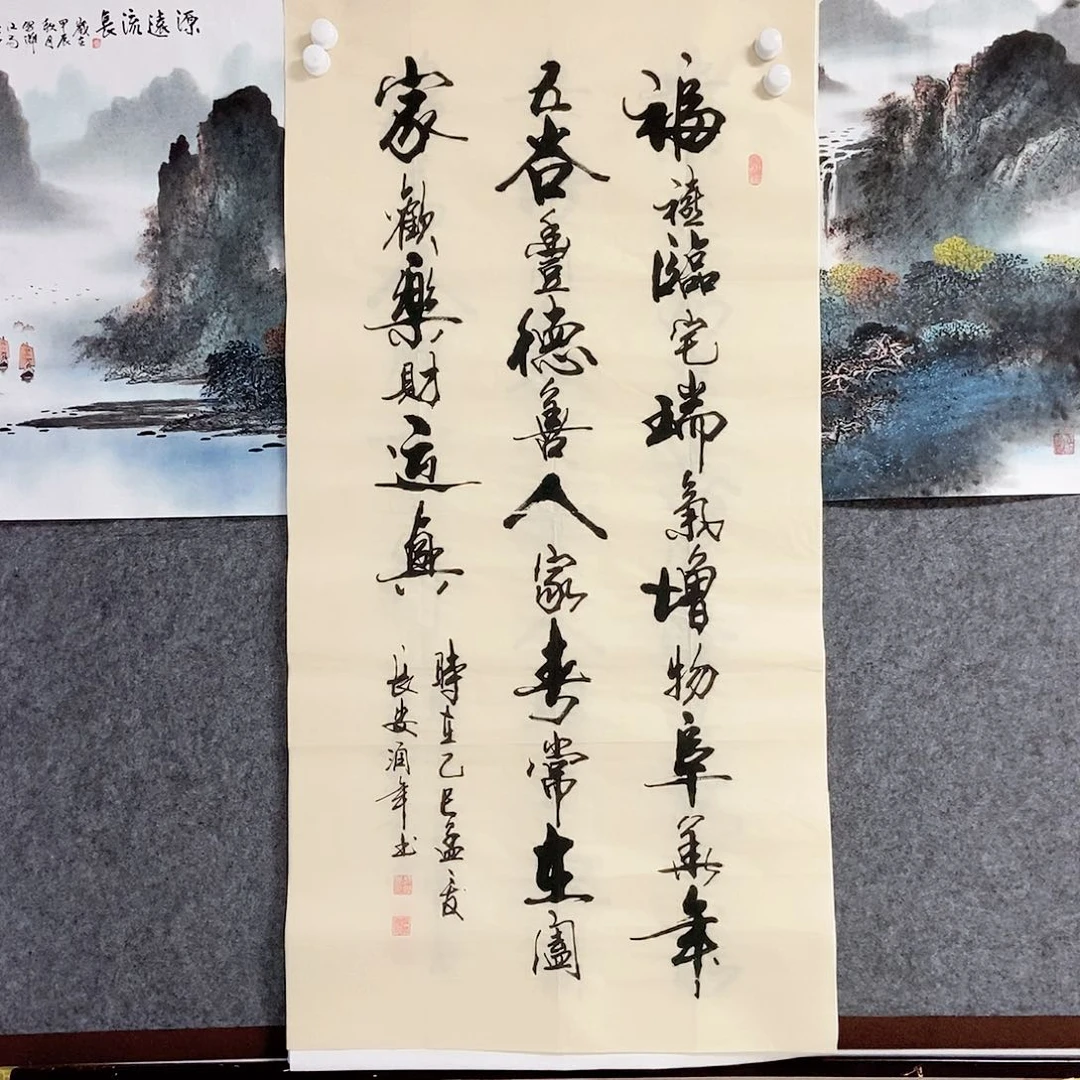 福禧臨宅瑞氣增物阜華年
五谷豐德善人家春常在闔
家歡樂財運興
時在乙巳孟夏
長安潤年书
源遠流長
歲在
甲辰
秋月